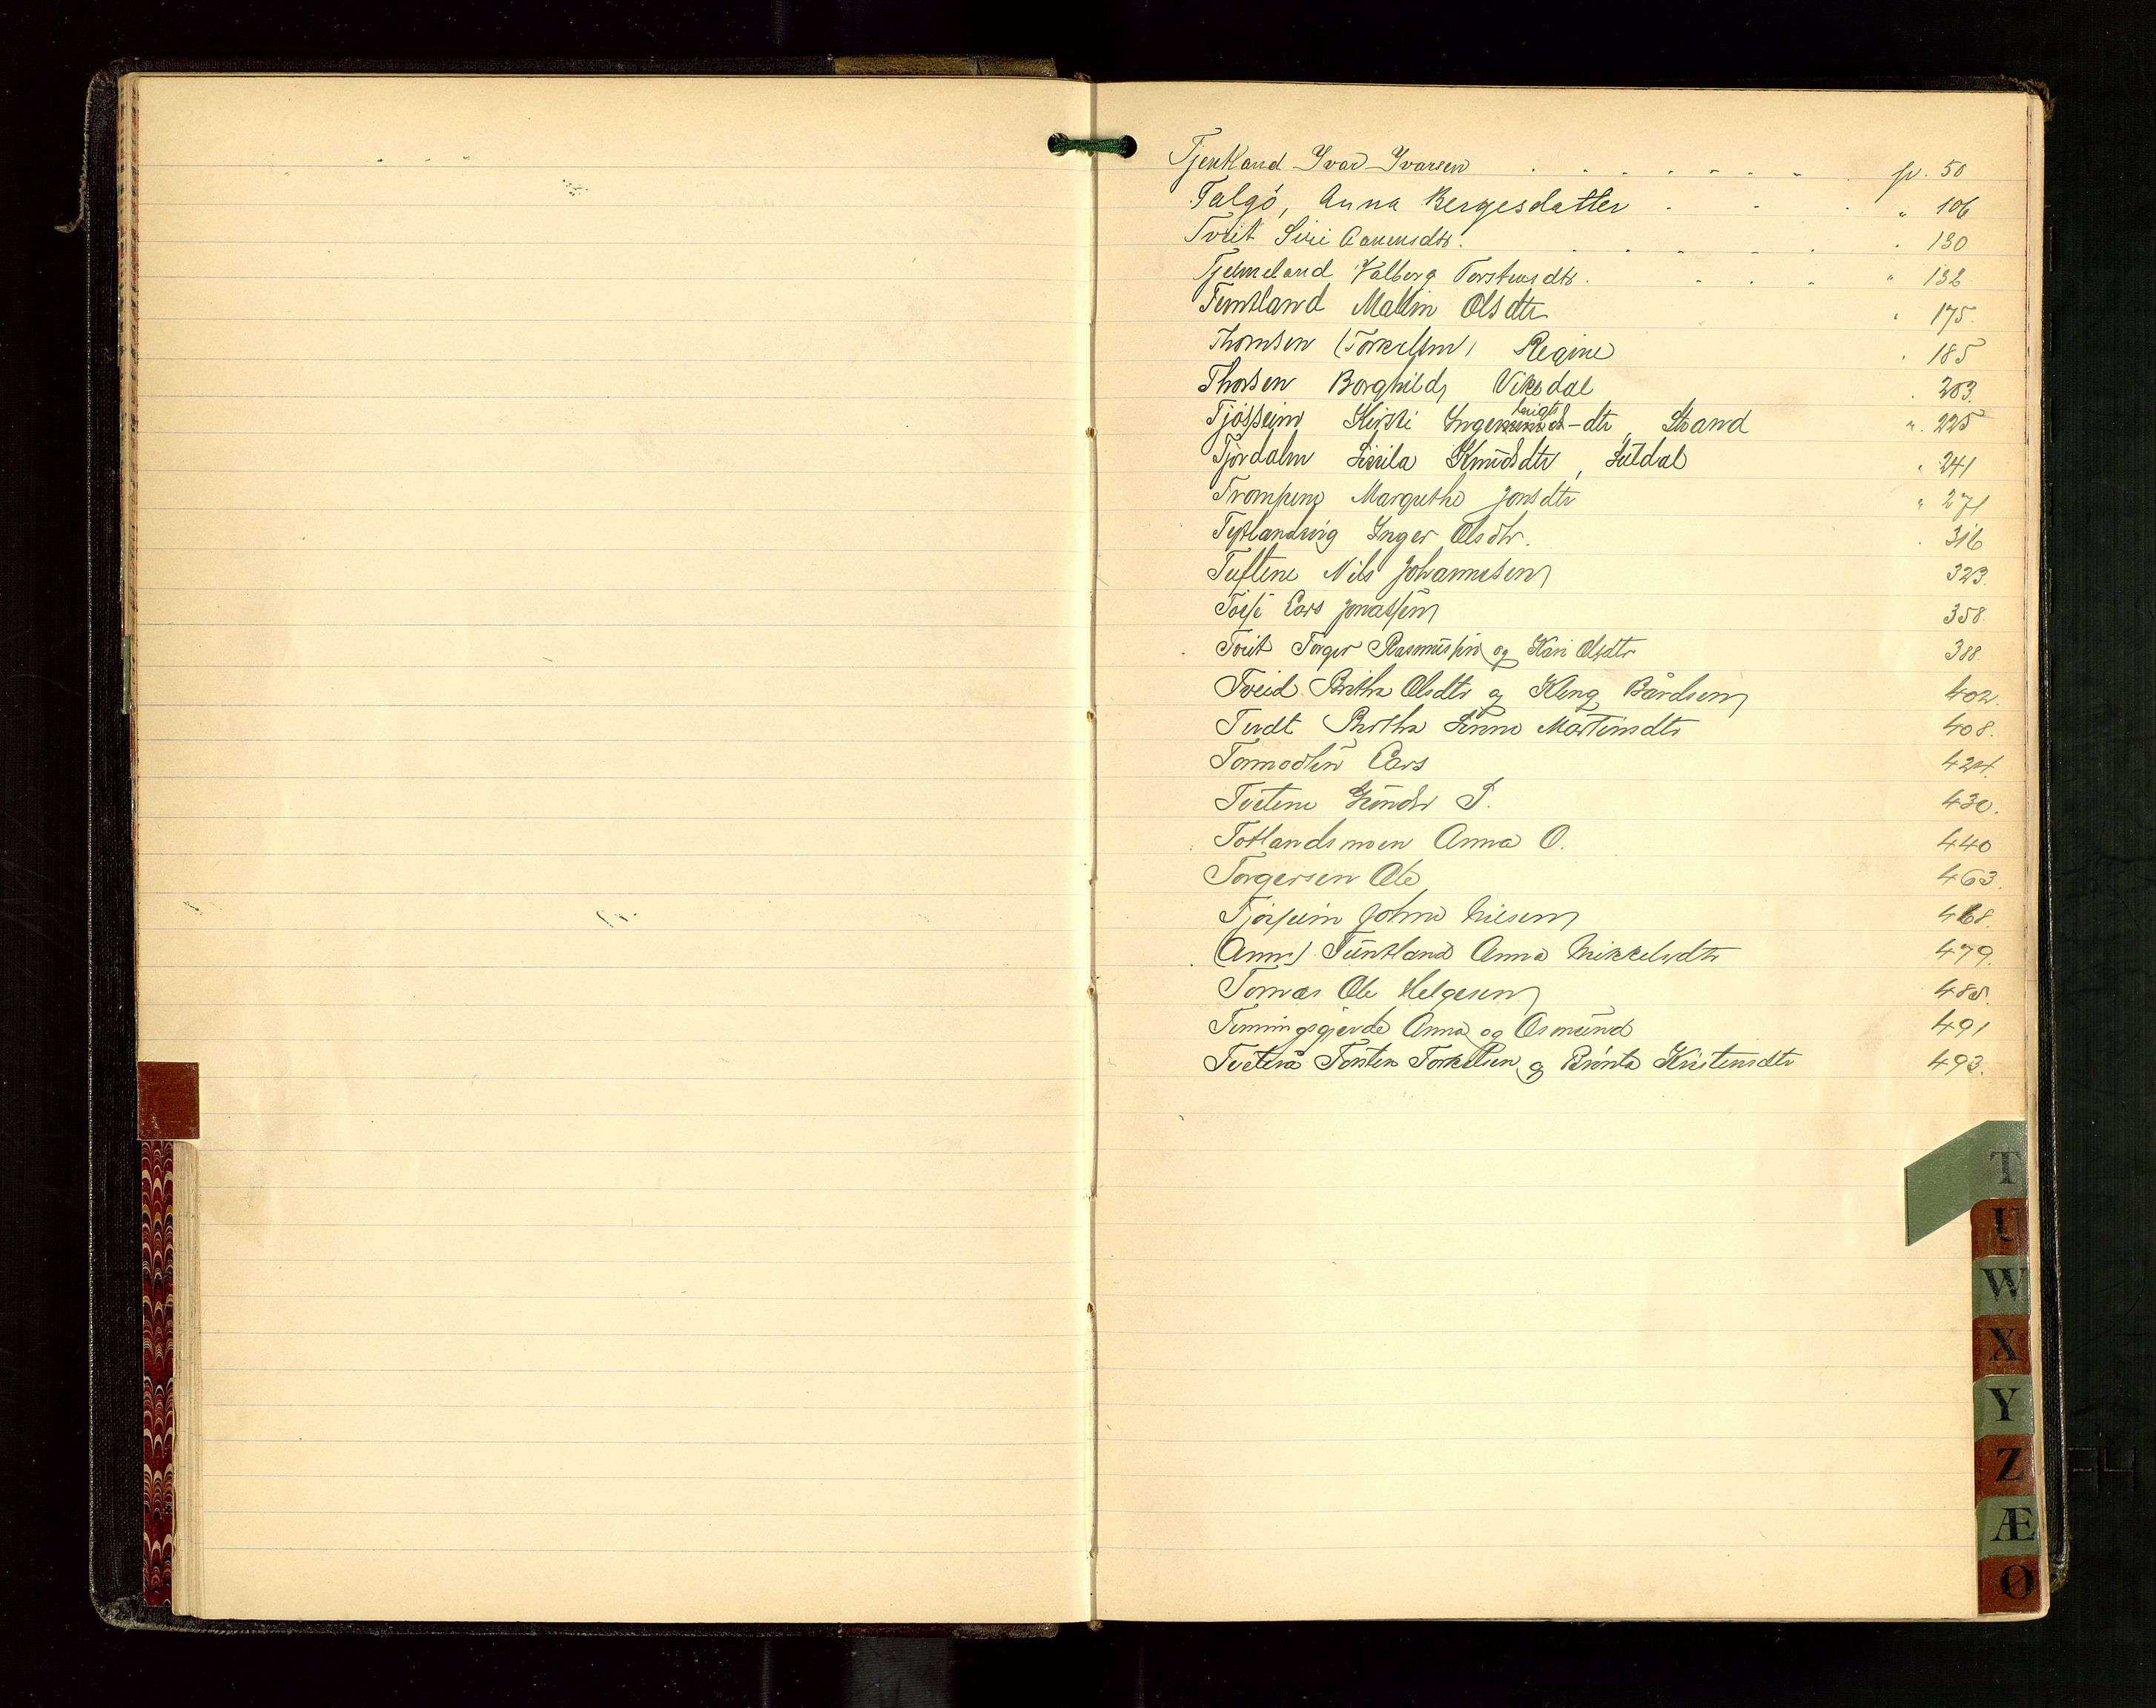 Tjentland Ivar Ivarsen . . . . . . . p. 50
Talgö, Anna Bergesdatter . . . " 106
Tveit Siri Aanensdtr. . . . . . . 130
Tjelmeland Valborg Torstensdtr. . . . " 132
Tuntland Mallin Olsdtr " 175.
Thomsen (Torkelsen) Regine " 185
Thorsen Borghild, Vikedal . 203.
Tjösseim Kirsti Inge brigts -dtr, Strand ". 225
Tjordalm Sissila Knudsdtr, Suldal " 241
Trompene Margrethe Jonsdtr " 271
Inger Olsdtr. . 316
Tuftene Nils Johannesen 323.
Lars Jonassen 358.
Tveit Torger Rasmussen og Kari Olsdtr 388.
Tveid Britha Olsdtr og Kleng Bårdsen 402.
Tvedt Bertha Serine Martinsdtr 408.
Tormodsen Lars 424.
Tvetene Gunder S. 430.
Totlandsmoen Anna O. 440
Torgersen Ole 463.
Tjösseim Johne Nilsen 468.
(Anm) Tuntland Anna Mikkelsdtr 479.
Tornes Ole Helgesen 485.
Tenningsgjerde Anna og Osmund 491
Tveterå Torsten Torkelsen og Brönla Kristensdtr 493.
T
U
W
X
Y
Z
Æ
Ø